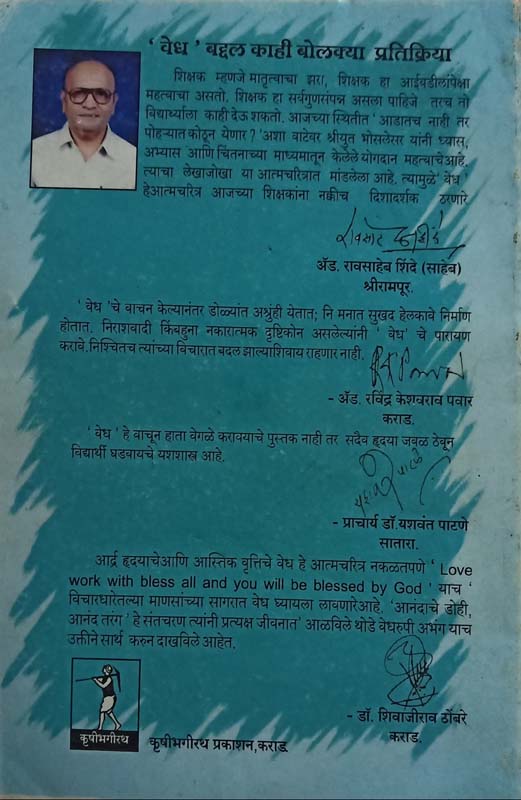 ' वेध ' बद्दल काही बोलक्या प्रतिक्रिया
शिक्षक म्हणजे मातृत्वाचा झरा, शिक्षक हा आईवडीलांपेक्षा
महत्वाचा असतो. शिक्षक हा सर्वगुणसंपन्न असला पाहिजे तरच तो
विद्यार्थ्याला काही देऊ शकतो. आजच्या स्थितीत ' आडातच नाही तर
पोहऱ्यात कोठून येणार ? 'अशा वाटेवर श्रीयुत भोसलेसर यांनी ध्यास,
अभ्यास आणि चिंतनाच्या माध्यमातून केलेले योगदान महत्वाचे आहे.
त्याचा लेखाजोखा या आत्मचरित्रात मांडलेला आहे. त्यामुळे ' वेध '
हेआत्मचरित्र आजच्या शिक्षकांना नक्कीच दिशादर्शक ठरणारे
ॲड. रावसाहेब शिंदे (साहेब)
श्रीरामपूर.
' वेध 'चे वाचन केल्यानंतर डोळ्यांत अश्रूंही येतात; नि मनात सुखद हेलकावे निर्माण
होतात. निराशवादी किंबहुना नकारात्मक दृष्टिकोन असलेल्यांनी ' वेध' चे पारायण
करावे. निश्चितच त्यांच्या विचारात बदल झाल्याशिवाय राहणार नाही.
- ॲड. रविंद्र केशवराव पवार
कराड.
' वेध ' हे वाचून हाता वेगळे करावयाचे पुस्तक नाही तर सदैव हृदया जवळ ठेवून
विद्यार्थी घडवायचे यशशास्त्र आहे.
- प्राचार्य डॉ.यशवंत पाटणे
सातारा.
आर्द्र हृदयाचेआणि आस्तिक वृत्तिचे वेध हे आत्मचरित्र नकळतपणे ' Love
work with bless all and you will be blessed by God ' याच '
विचारधारेतल्या माणसांच्या सागरात वेध घ्यायला लावणारेआहे. 'आनंदाचे डोही,
आनंद तरंग ' हे संतचरण त्यांनी प्रत्यक्ष जीवनात' आळविले थोडे वेधरुपी अभंग याच
उक्तीने सार्थ करुन दाखविले आहेत.
- डॉ. शिवाजीराव ठोंबरे
कराड.
कृषीभगीरथ
कृषीभगीरथ प्रकाशन,कराड.